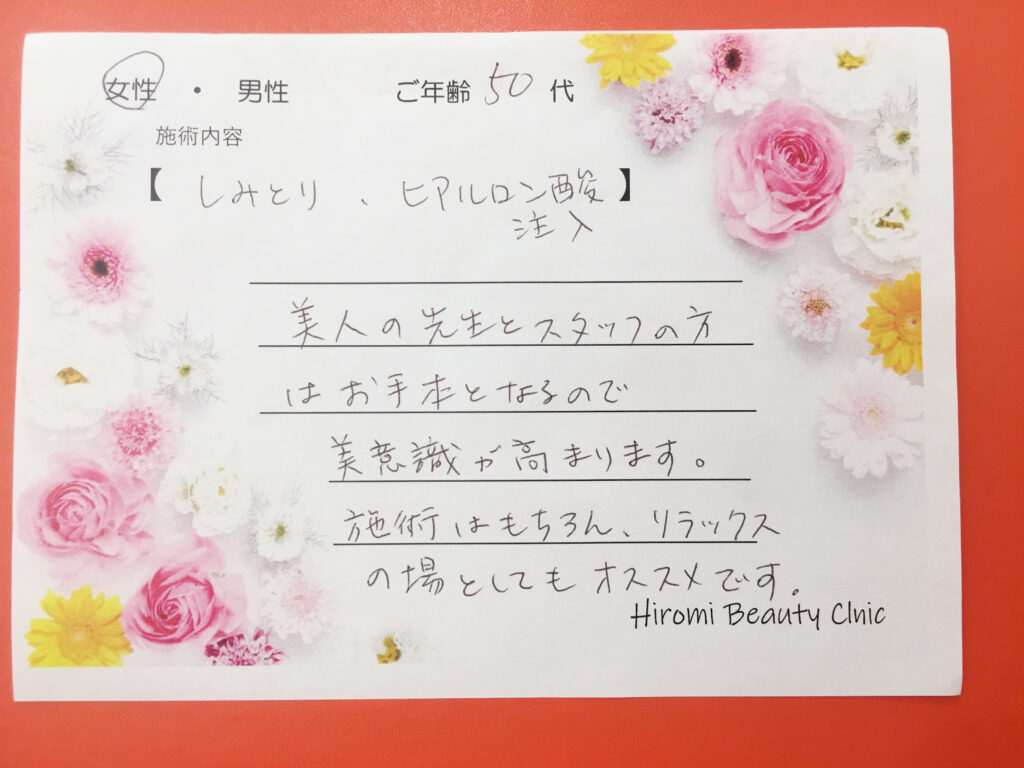 女性 ・ 男性 ご年齢 50 代
施術内容
【 しみとり 、 ヒアルロン酸 】
注入
美人の先生とスタッフの方
はお手本となるので
美意識が高まります。
施術はもちろん、リラックス
の場としてもオススメです。
Hiromi Beauty Clnic